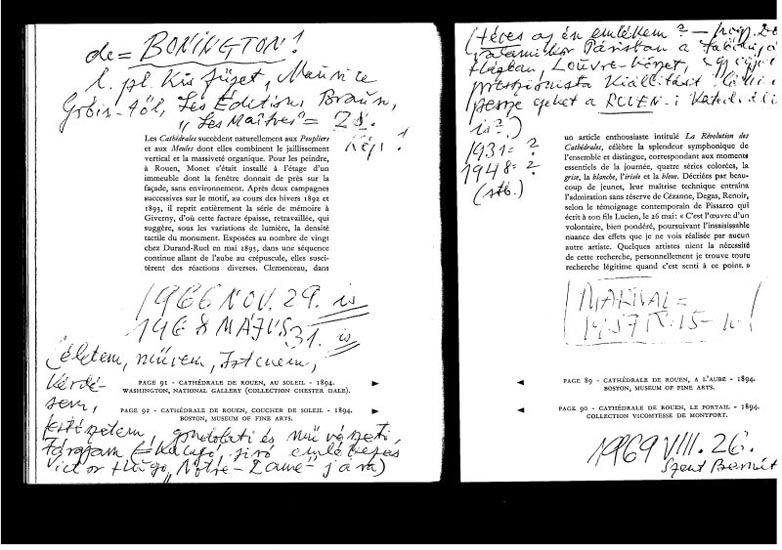 de = BONINGTON!
l. pl. Kis füzet, Maurice
Gobin-től, Les Éditions Braun,
"Les Maîtres" = 28.
kép!
Les Cathédrales succèdent naturellement aux Peupliers
et aux Meules dont elles combinent le jaillissement
vertical et la massiveté organique. Pour les peindre,
à Rouen, Monet s'était installé à l'étage d'un
immeuble dont la fenêtre donnait de près sur la
façade, sans environnement. Après deux campagnes
successives sur le motif, au cours des hivers 1892 et
1893, il reprit entièrement la série de mémoire à
Giverny, d'où cette facture épaisse, retravaillée, qui
suggère, sous les variations de lumière, la densité
tactile du monument. Exposées au nombre de vingt
chez Durand-Ruel en mai 1895, dans une séquence
continue allant de l'aube au crépuscule, elles susci-
tèrent des réactions diverses. Clemenceau, dans
1966 NOV. 29. is
1968 MÁJUS 31. is
(életem, művem, Istenem,
kérdé-
sem,
PAGE 91 - CATHÉDRALE DE ROUEN, AU SOLEIL - 1894.
WASHINGTON, NATIONAL GALLERY (COLLECTION CHESTER DALE).
PAGE 92 - CATHÉDRALE DE ROUEN, COUCHER DE SOLEIL - 1894.
BOSTON, MUSEUM OF FINE ARTS.
gondolati és művészeti,
Victor Hugo "Notre-Dame"-jára)
(téves az én emlékem? —
valamikor Párisban a
Louvre-
presszionista kiállítást
persze lehet a ROUEN-i
is?)
1931 = ?
1948 = ?
(stb.)
un article enthousiaste intitulé La Révolution des
Cathédrales, célèbre la splendeur symphonique de
l'ensemble et distingue, correspondant aux moments
essentiels de la journée, quatre séries colorées, la
grise, la blanche, l'irisée et la bleue. Décriées par beau-
coup de jeunes, leur maîtrise technique entraîna
l'admiration sans réserve de Cézanne, Degas, Renoir,
selon le témoignage contemporain de Pissarro qui
écrit à son fils Lucien, le 26 mai: « C'est l'œuvre d'un
volontaire, bien pondéré, poursuivant l'insaisissable
nuance des effets que je ne vois réalisée par aucun
autre artiste. Quelques artistes nient la nécessité
de cette recherche, personnellement je trouve toute
recherche légitime quand c'est senti à ce point. »
1957 IV. 15-
PAGE 89 - CATHÉDRALE DE ROUEN, A L'AUBE - 1894.
BOSTON, MUSEUM OF FINE ARTS.
PAGE 90 - CATHÉDRALE DE ROUEN, LE PORTAIL - 1894.
COLLECTION VICOMTESSE DE MONTFORT.
1969 VIII. 26.
Szent Bernát